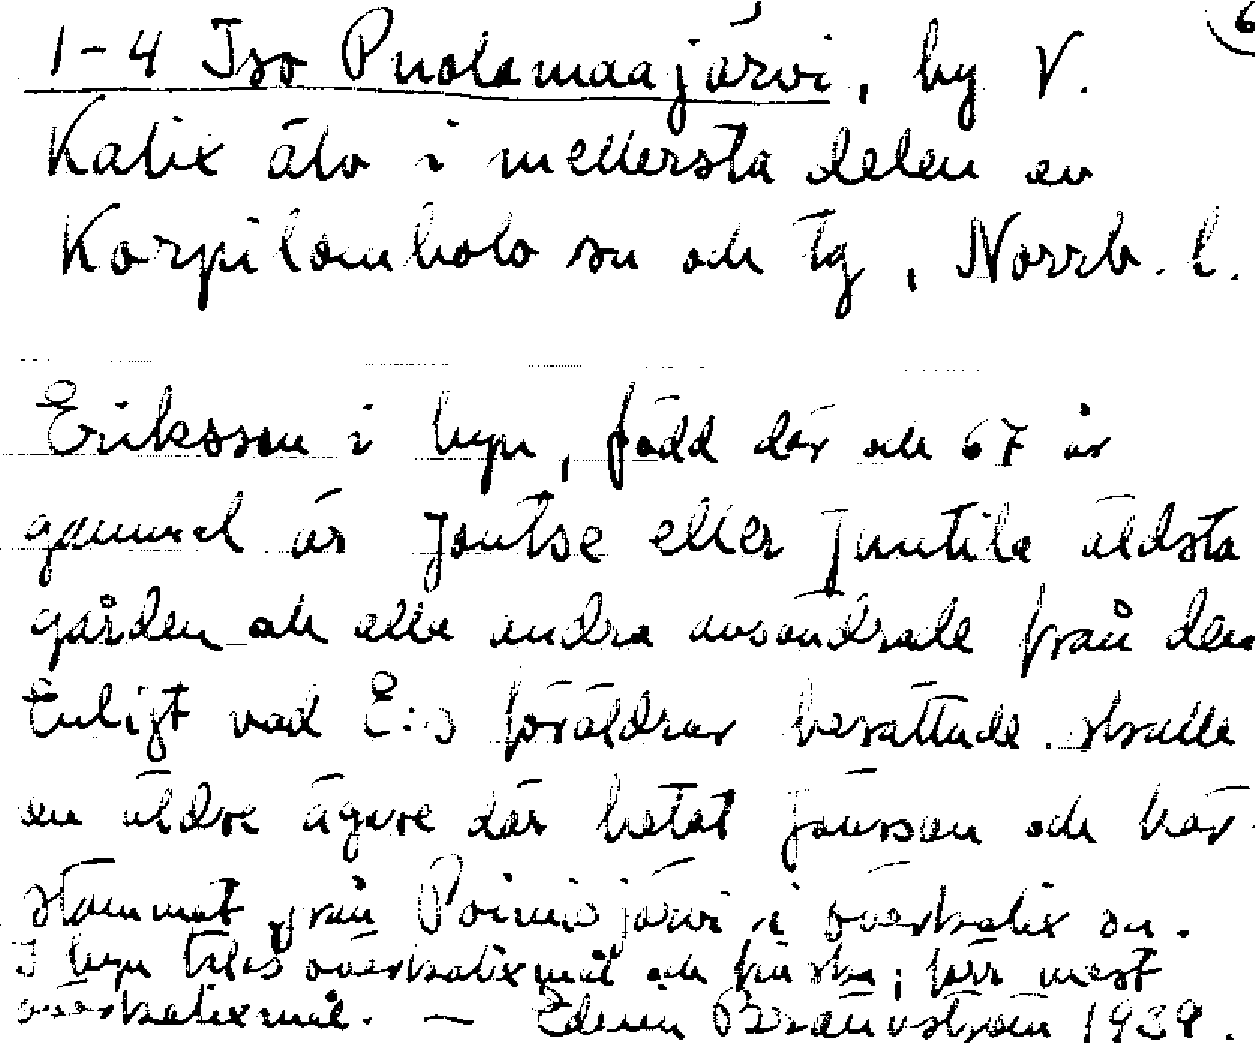 6
1-4 Iso Puolamaajärvi, by V.
Kalix älv i mellersta delen av
Korpilombolo sn och tg, Norrb. l.
Eriksson i byn, född där och 67 år
gammal är Joutse eller Juntila äldsta
gården och alla andra avsöndrade från den
Enligt vad E:s föräldrar berättade skulle
en äldre ägare där hetat Jönsson och här-
stammat från järvi i överkalix sn.
I byn talas överkalixmål och finska, förr mest
överkalixmål. – Edvin Brännström 1939.